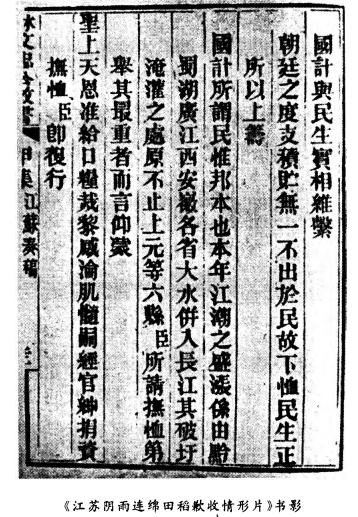 國計與民生實相維繫
朝廷之度支積貯無一不出於民故下恤民生正
所以上籌
國計所謂民惟邦本也本年江潮之盛漲係由黔
蜀湖廣江西安徽各省大水併入長江其破圩
淹灌之處原不止上元等六縣臣所請撫恤第
舉其最重者而言仰蒙
聖上天恩准給口糧裁黎感淪肌髓嗣經官紳捐資
撫恤臣卽復行
林文忠公政書 甲集江蘇奏稿
《江苏阴雨连绵田稻歉收情形片》书影